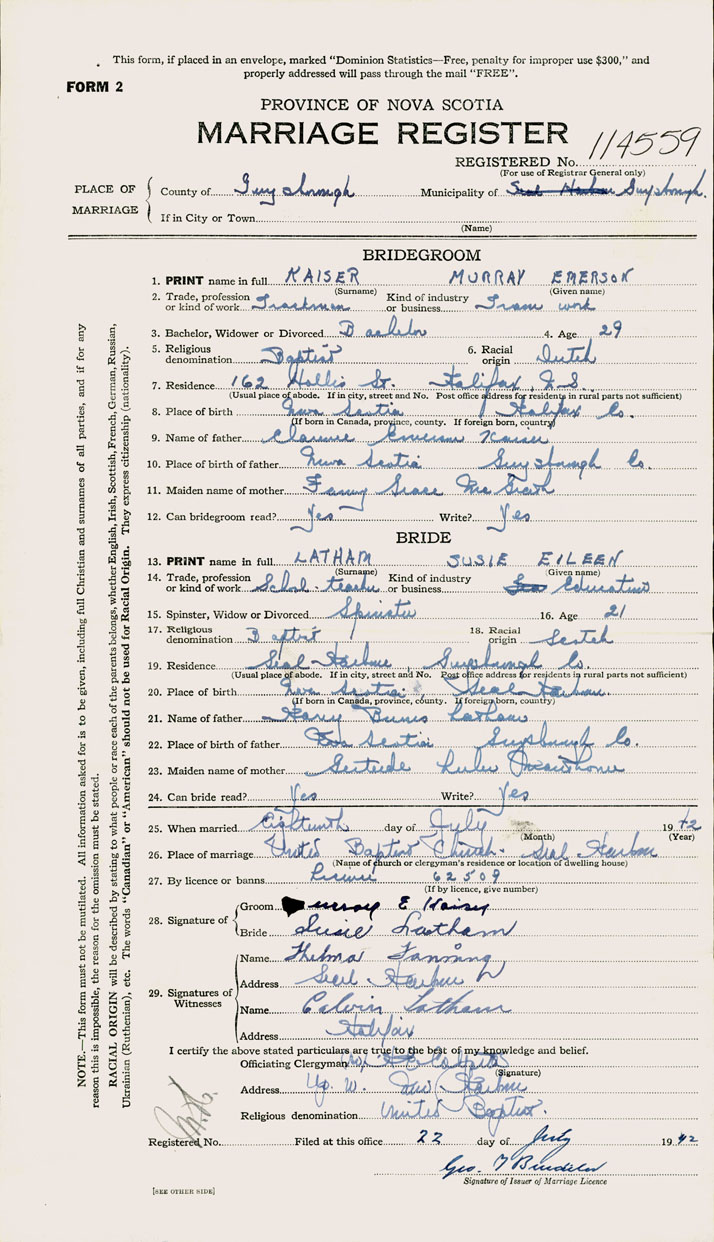 This form, if placed in an envelope, marked “Dominion Statistics—Free, penalty for improper use $300,” and
properly addressed will pass through the mail “FREE”.
FORM 2
PROVINCE OF NOVA SCOTIA
MARRIAGE REGISTER
114559
REGISTERED No.
(For use of Registrar General only)
PLACE OF MARRIAGE
County of Guysborough Municipality of Seal Harbour Guysborough.
If in City or Town
(Name)
BRIDEGROOM
1. PRINT name in full KAISER MURRAY EMERSON
(Surname) (Given name)
2. Trade, profession or kind of work Trackman Kind of industry or business Tram work
3. Bachelor, Widower or Divorced Bachelor 4. Age 29
5. Religious denomination Baptist 6. Racial origin Dutch
7. Residence 162 Hollis St. Halifax, N.S.
(Usual place of abode. If in city, street and No. Post office address for residents in rural parts not sufficient)
8. Place of birth Nova Scotia Halifax Co.
(If born in Canada, province, county. If foreign born, country)
9. Name of father Clarence Emerson Kaiser
10. Place of birth of father Nova Scotia Guysborough Co.
11. Maiden name of mother Fanny Grace McGrath
12. Can bridegroom read? Yes Write? Yes
BRIDE
13. PRINT name in full LATHAM SUSIE EILEEN
(Surname) (Given name)
14. Trade, profession or kind of work School-teacher Kind of industry or business Education
15. Spinster, Widow or Divorced Spinster 16. Age 21
17. Religious denomination Baptist 18. Racial origin Scotch
19. Residence Seal Harbour Guysborough Co.
(Usual place of abode. If in city, street and No. Post office address for residents in rural parts not sufficient)
20. Place of birth Nova Scotia Seal Harbour
(If born in Canada, province, county. If foreign born, country)
21. Name of father Harry Burns Latham
22. Place of birth of father Nova Scotia Guysburgh Co.
23. Maiden name of mother Gertrude Lulu
24. Can bride read? Yes Write? Yes
25. When married Eighteenth day of July 1942
(Month) (Year)
26. Place of marriage United Baptist Church Seal Harbour
(Name of church or clergyman's residence or location of dwelling house)
27. By licence or banns License 62509
(If by licence, give number)
28. Signature of
Groom Murray E Kaiser
Bride Susie Latham
29. Signatures of Witnesses
Name Thelma Fanning
Address Seal Harbour
Name Calvin Latham
Address Halifax
I certify the above stated particulars are true to the best of my knowledge and belief.
Officiating Clergyman
(Signature)
Address New Harbour
Religious denomination United Baptist.
Registered No. Filed at this office 22 day of July 1942
Geo. T
Signature of Issuer of Marriage Licence
[SEE OTHER SIDE]
NOTE.—This form must not be mutilated. All information asked for is to be given, including full Christian and surnames of all parties, and if for any
reason this is impossible, the reason for the omission must be stated.
RACIAL ORIGIN will be described by stating to what people or race each of the parents belongs, whether English, Irish, Scottish, French, German, Russian,
Ukrainian (Ruthenian), etc. The words “Canadian” or “American” should not be used for Racial Origin. They express citizenship (nationality).